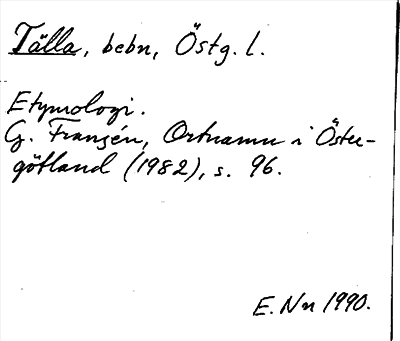 Tälla, bebn, Östg. l.
Etymologi.
G. Franzén, Ortnamn i Öster-
götland (1982), s. 96.
E. Nn 1990.